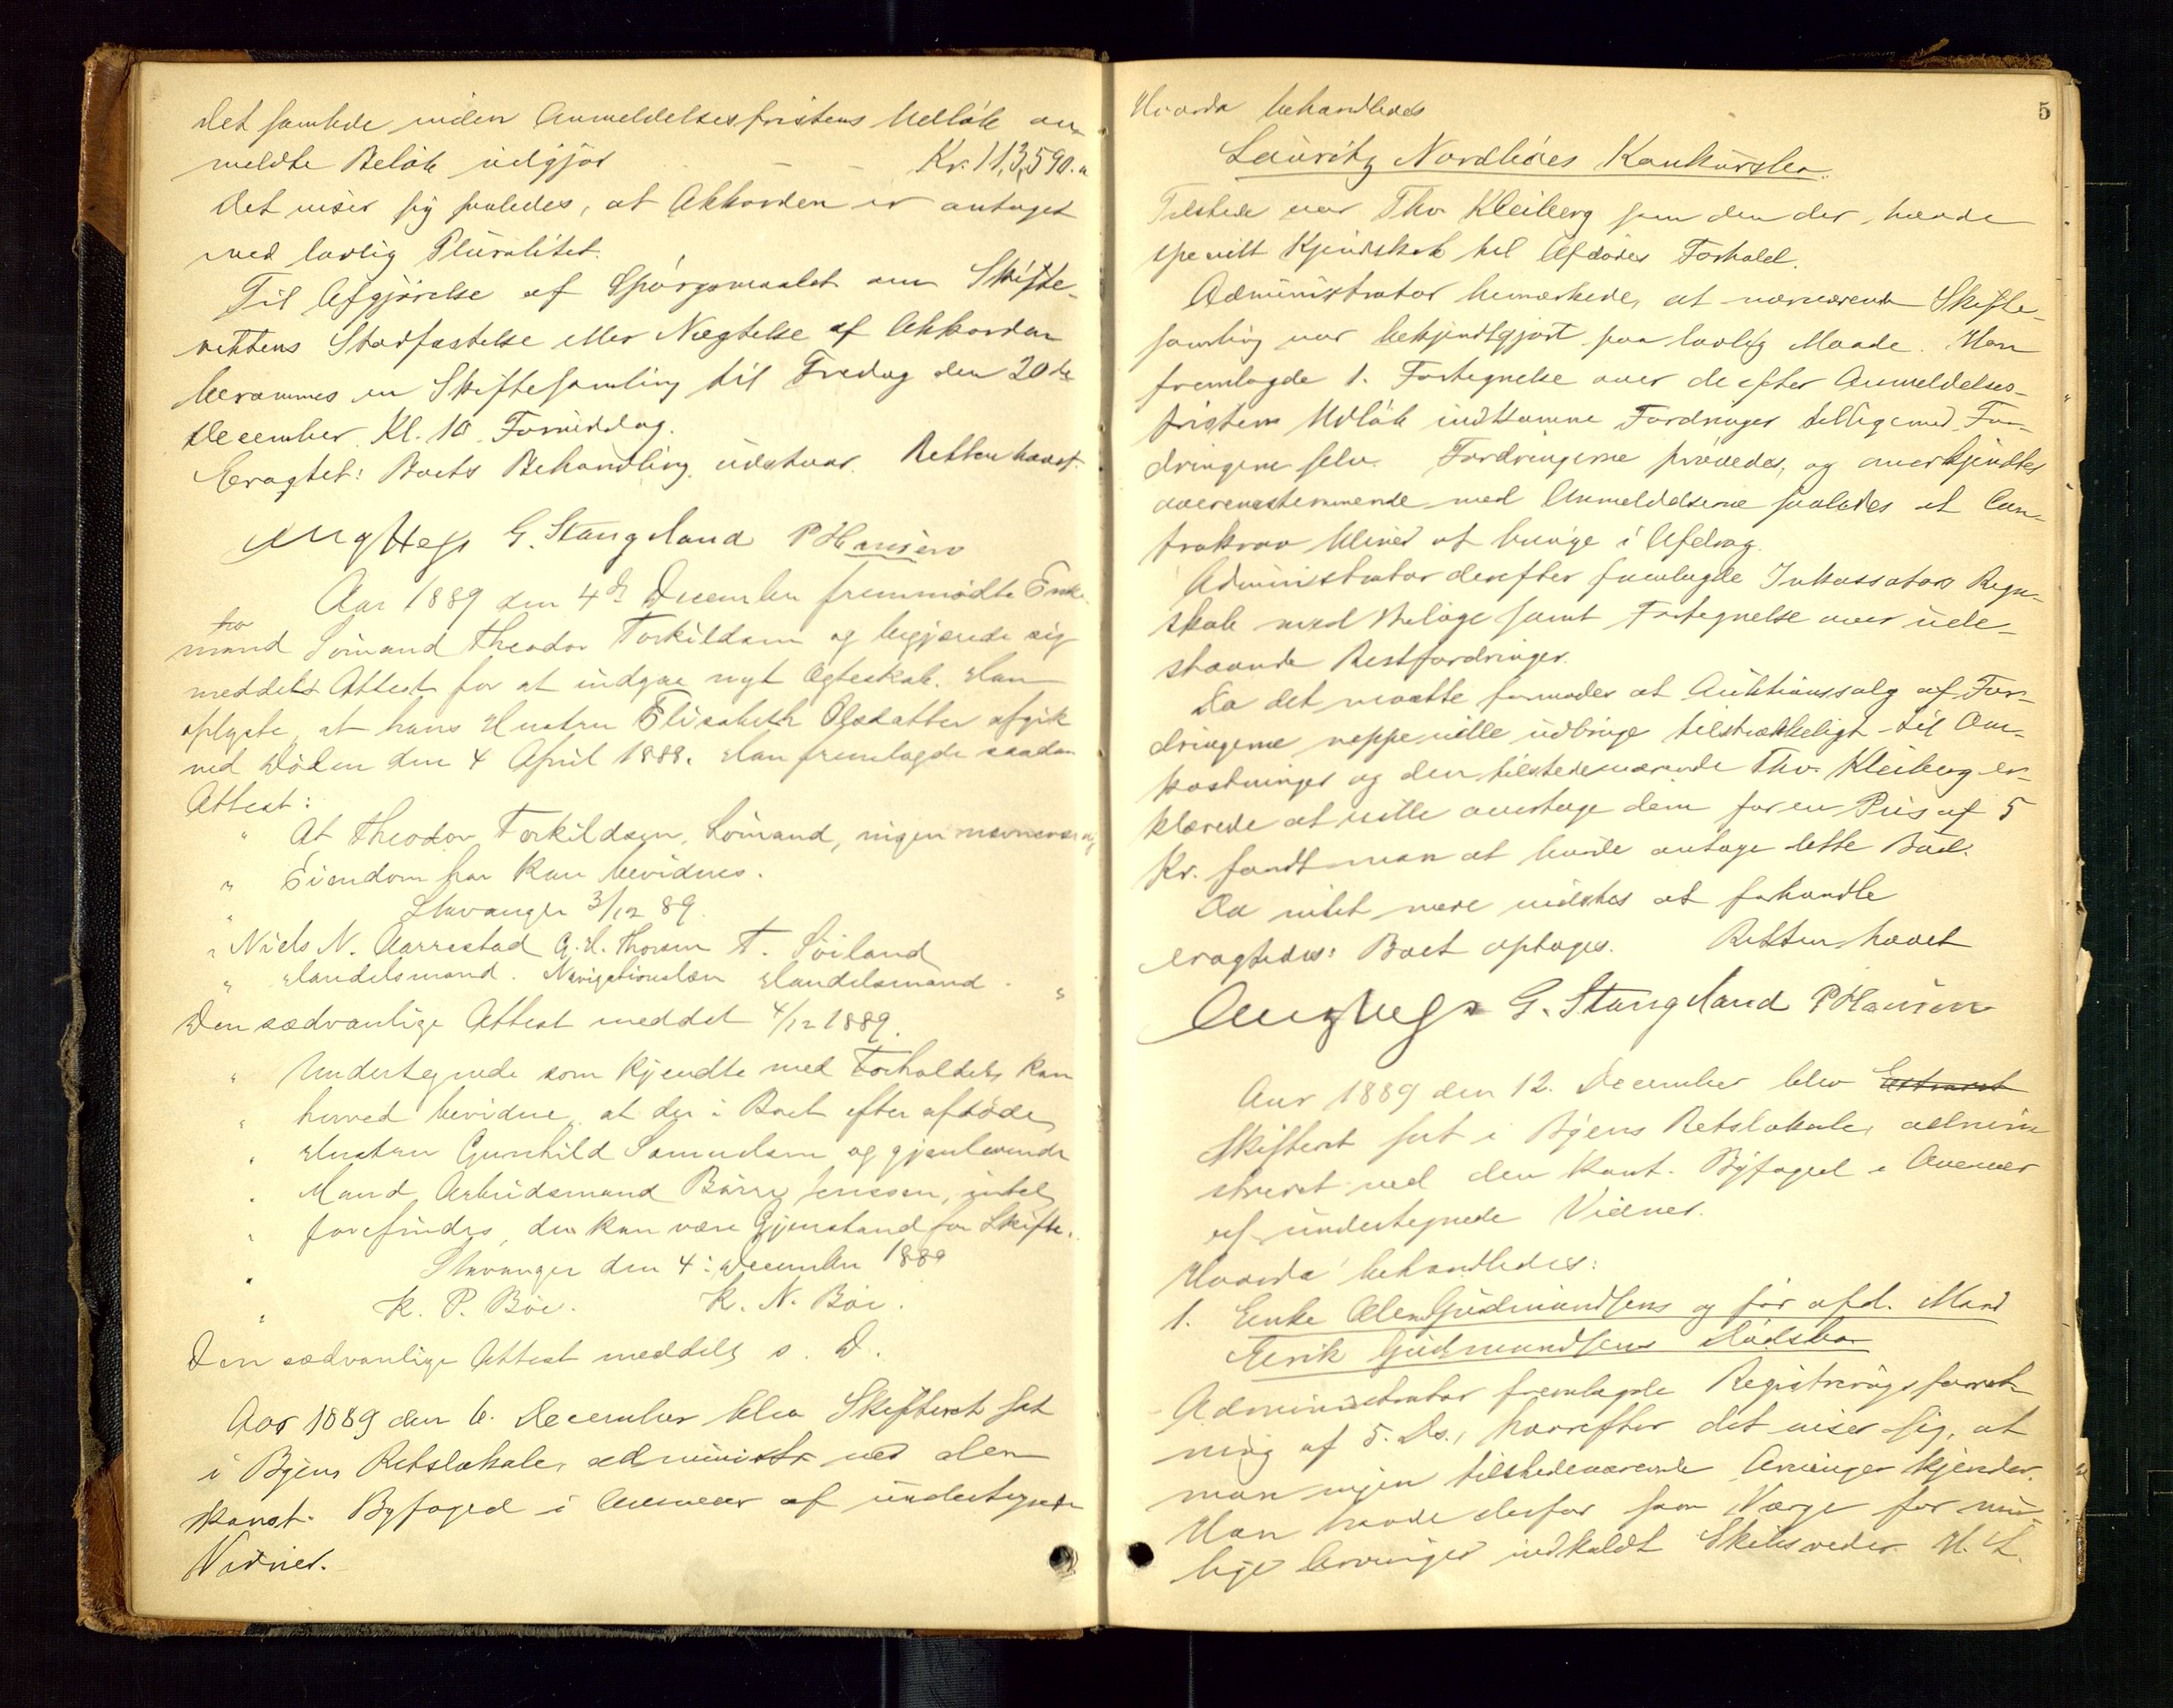 det samlede inden Anmeldelsesfristens Udløb an-
meldte Beløb udgjør - - Kr. 113,590.
Det viser sig saaledes, at Akkorden er antaget
med lovlig Pluralitet.
Til Afgjørelse af Spørgsmaalet om Skifte-
rettens Stadfæstelse eller Nægtelse af Akkorden
berammes en Skiftesamling til Fredag den 20de
December Kl. 10 Formiddag.
Eragtet: Boets Behandling udstaar. Retten hævet.
G. Stangeland P Hansen
Aar 1889 den 4de December fremmødte Enke-
mand Sømand Theodor Torkildsen og begjærede sig
meddelt Attest for at indgaa nyt Ægteskab. Han
oplyste, at hans Hustru Elisabeth Olsdatter afgik
ved Døden den 4 April 1888. Han fremlagde saadan
Attest:
" At Theodor Torkildsen, Sømand, ingen nævneværdig
" Eiendom har kan bevidnes.
" Stavanger 3/12 89.
" Niels N. Aarrestad G. H. Thorsen T. Søiland
" Handelsmand. Navigationslærer Handelsmand. "
Den sædvanlige Attest meddelt 4/12 1889.
" Undertegnede som kjendte med Forholdet, kan
" herved bevidne, at der i Boet efter afdøde
" Hustru Gunhild Samuelsen og gjenlevende
" Mand Arbeidsmand Børre Jenssen, intet
" forefindes, der kan være Gjenstand for Skifte.
" Stavanger den 4: December 1889
" K. P. Bøe. K. N. Bøe.
Den sædvanlige Attest meddelt s. D.
Aar 1889 den 6. December blev Skifteret sat
i Byens Retslokale, administr. ved den
konst. Byfoged i Overvær af undertegnede
Vidner.
5
Hvorda behandledes
Lauritz Nordbøes Konkursbo.
Tilstede var Thv. Kleiberg som den der havde
specielt Kjendskab til Afdødes Forhold.
Administrator bemærkede, at nærværende Skifte-
samling var bekjendtgjort paa lovlig Maade. Han
fremlagde 1. Fortegnelse over de efter Anmeldelses-
fristens Udløb indkomne Fordringer tilligemed For-
dringerne selv. Fordringerne prøvedes, og anerkjendtes
overensstemmende med Anmeldelserne saaledes at
bliver at bringe i Afdrag.
Administrator derefter fremlagde Inkassators Regn-
skab med Bilage samt Fortegnelse over ude-
staaende Restfordringer.
Da det maatte formodes at Auktionssalg af For-
dringerne neppe ville udbringe tilstrækkeligt til Om-
kostninger og den tilstedeværende Thv. Kleiberg er-
klærede at ville overtage dem for en Pris af 5
Kr. fandt man at burde antage dette Bud.
Da intet mere vidstes at forhandle
eragtedes: Boet optages. Retten hævet
G. Stangeland P Hansen
Aar 1889 den 12. December blev
Skifteret sat i Byens Retslokale, admini-
streret ved den konst. Byfoged i Overvær
af undertegnede Vidner.
Hvorda behandledes:
1. Enke Gudmundsens og før afd. Mand
Eerik Gudmundsens Dødsbo
Administrator fremlagde Registreringsforret-
ning af 5. Ds., hvorefter det viser sig, at
man ingen tilstedeværende Arvinger kjender.
Man havde derfor som Værge for mu-
lige Arvinger indkaldt